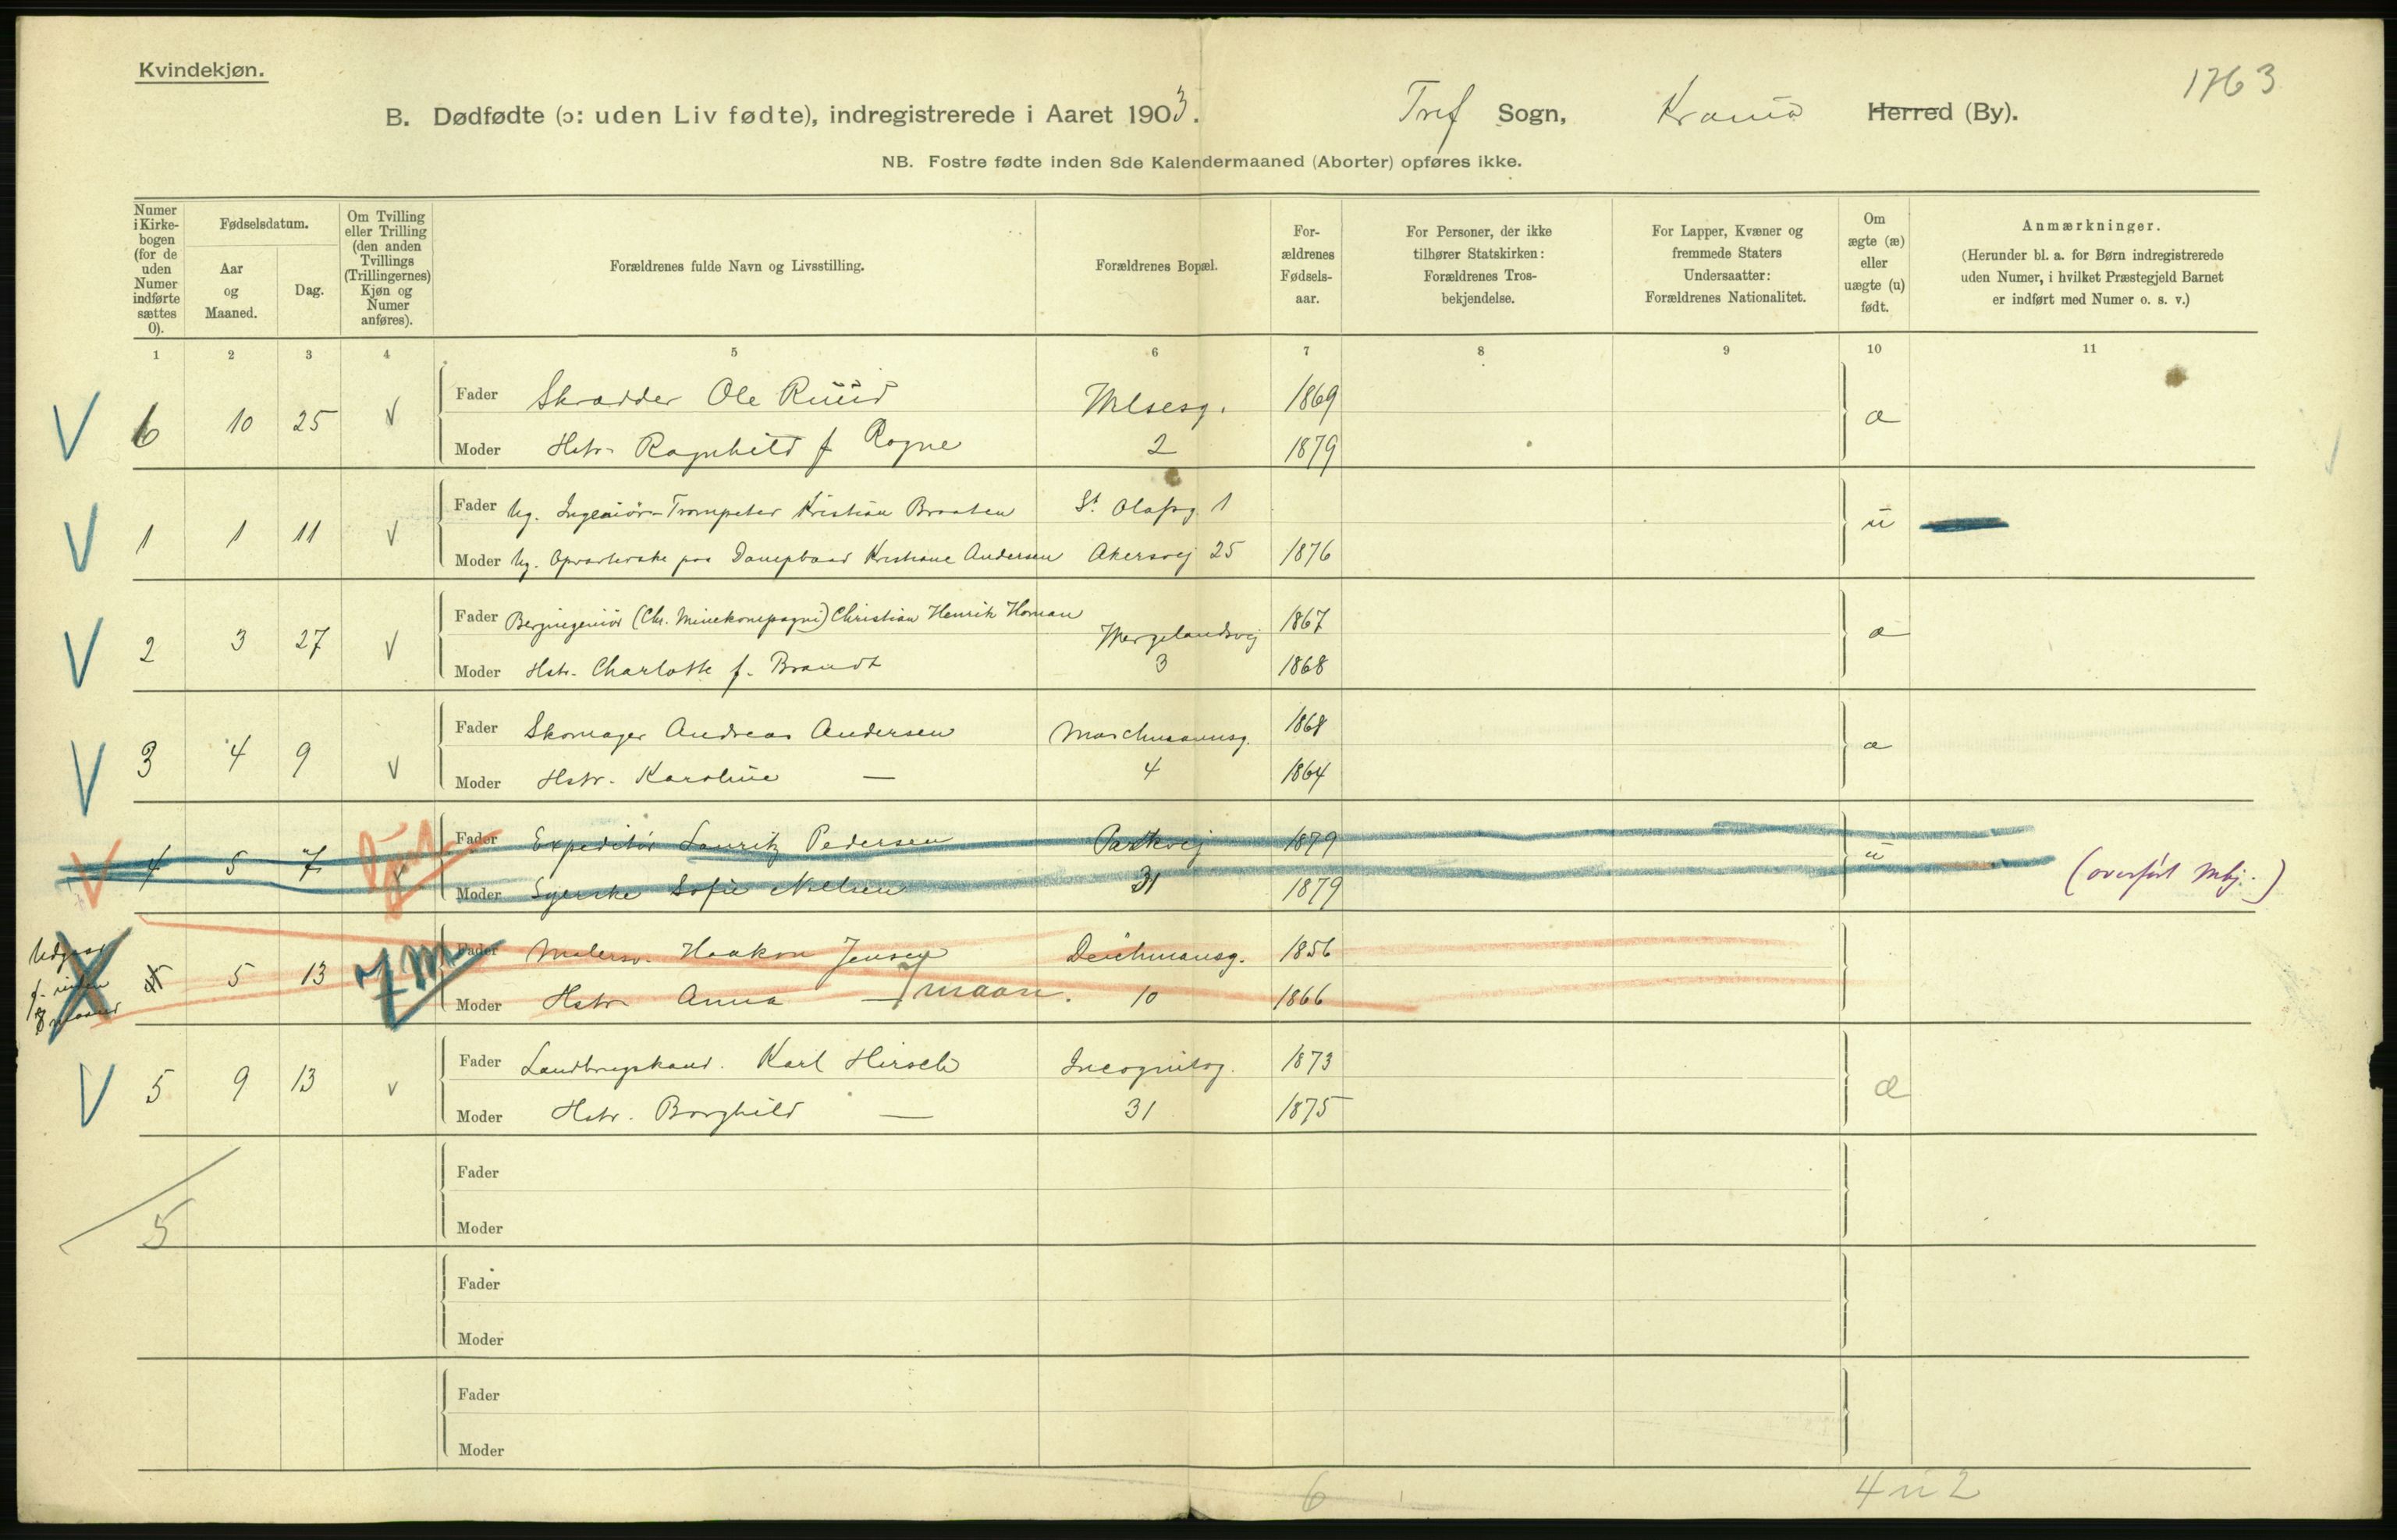 Kvindekjøn.
1763
B. Dødfødte (ɔ: uden Liv fødte), indregistrerede i Aaret 1903. Tref Sogn, Krania Herred (By).
NB. Fostre fødte inden 8de Kalendermaaned (Aborter) opføres ikke.
Numer i Kirke-bogen (for de uden Numer indførte sættes 0).
Fødselsdatum.
Aar og Maaned.
Dag.
Om Tvilling eller Trilling (den anden Tvillings (Trillingernes) Kjøn og Numer anføres).
Forældrenes fulde Navn og Livsstilling.
Forældrenes Bopæl.
For-ældrenes Fødsels-aar.
For Personer, der ikke tilhører Statskirken: Forældrenes Tros-bekjendelse.
For Lapper, Kvæner og fremmede Staters Undersaatter: Forældrenes Nationalitet.
Om ægte (æ) eller uægte (u) født.
Anmærkninger.
(Herunder bl. a. for Børn indregistrerede uden Numer, i hvilket Præstegjeld Barnet er indført med Numer o. s. v.)
1 2 3 4 5 6 7 8 9 10 11
Fader Skrædder Ole Ruud 1869
6 10 25 æ
Moder Hstr. Ragnhild f Rogne 2 1879
Fader Ug. Ingeniør-Trompeter Kristian Braaten St. Olafsg. 1
1 1 11 u
Moder Ug. Opvarterske paa Dampbaad Kristiane Andersen Akersvej 25 1876
Fader Bergingeniør (Chr. Minekompagni) Christian Henrik Homan Wergelandsvej 1867
2 3 27 æ
Moder Hstr. Charlotte f. Brandt 3 1868
Fader Skomager Andreas Andersen Maschmannsg. 1868
3 4 9 æ
Moder Hstr. Karoline — 4 1864
Fader Expeditør Lauritz Pedersen Parkvej 1879
4 5 7 u (overført Mkj.)
Moder Syerske Sofie Nielsen 31 1879
Fader Malersv. Haakon Jensen Deichmansg. 1856
5 5 13 7 M
Moder Hstr Anna — 7 maan. 10 1866
Fader Landbrugskand. Karl Hirsch Incognitog. 1873
5 9 13 æ
Moder Hstr. Borghild — 31 1875
Fader
5
Moder
Fader
Moder
Fader
Moder
6 4 u 2